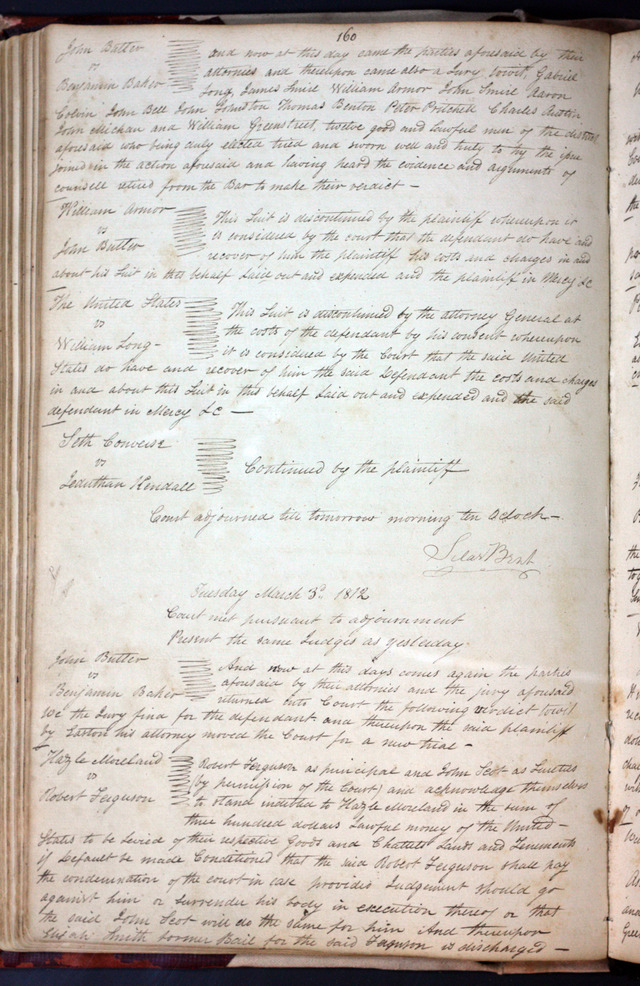 160
John Butter
vs
Benjamin Baker
and now at this day came the parties aforesaid by their
attornies and thereupon came also a Jury towit, Gabriel
Long, James Smirl William Armor John Smirl Aaron
Colvin John Bell John Johnston Thomas Benton Peter Pritchell Charles Austin
John and William Greenstreet, twelve good and lawful men of the district
aforesaid who being duly elected tried and sworn well and truly to try the issue
joined in the action aforesaid and having heard the evidence and arguments of
counsell retired from the Bar to make their verdict —
William Armor
vs
John Butter
This Suit is discontinued by the plaintiff whereupon it
is considered by the court that the defendant do have and
recover of him the plaintiff his costs and charges in and
about his Suit in this behalf Laid out and expended and the plaintiff in Mercy &c
The United States
vs
William Long -
This Suit is discontinued by the attorney General at
the costs of the defendant by his consent whereupon
it is considered by the Court that the said United
States do have and recover of him the said Defendant the costs and charges
in and about this Suit in this behalf Laid out and expended and the said
defendant in Mercy &c —
Seth Converse
vs
Kendall
Continued by the plaintiff
Court adjourned till tomorrow morning ten Oclock —
Silas Bent
Tuesday March 3d 1812
Court met pursuant to adjournment
Present the same Judges as yesterday.
John Butter
vs
Benjamin Baker
And now at this days comes again the parties
aforesaid by their attornies and the jury aforesaid
returned into Court the following verdict towit
We the Jury find for the defendant and thereupon the said plaintiff
by Easton his attorney moved the Court for a new trial —
Hazle Moreland
vs
Robert Ferguson
Robert Ferguson as principal and John Scot as Surities
(by permission of the Court) and acknowledge themselves
to stand indebted to Hazle Moreland in the sum of
three hundred dollars Lawful money of the United -
States to be Levied of their respective Goods and Chattels Lands and Tenements
if Default be made Conditioned that the said Robert Ferguson shall pay
the condemnation of the court in case provided Judgement should go
against him or surrender his body in execution thereof or that
the said John Scot will do the same for him And thereupon
Elijah Smith former Bail for the said Ferguson is discharged —